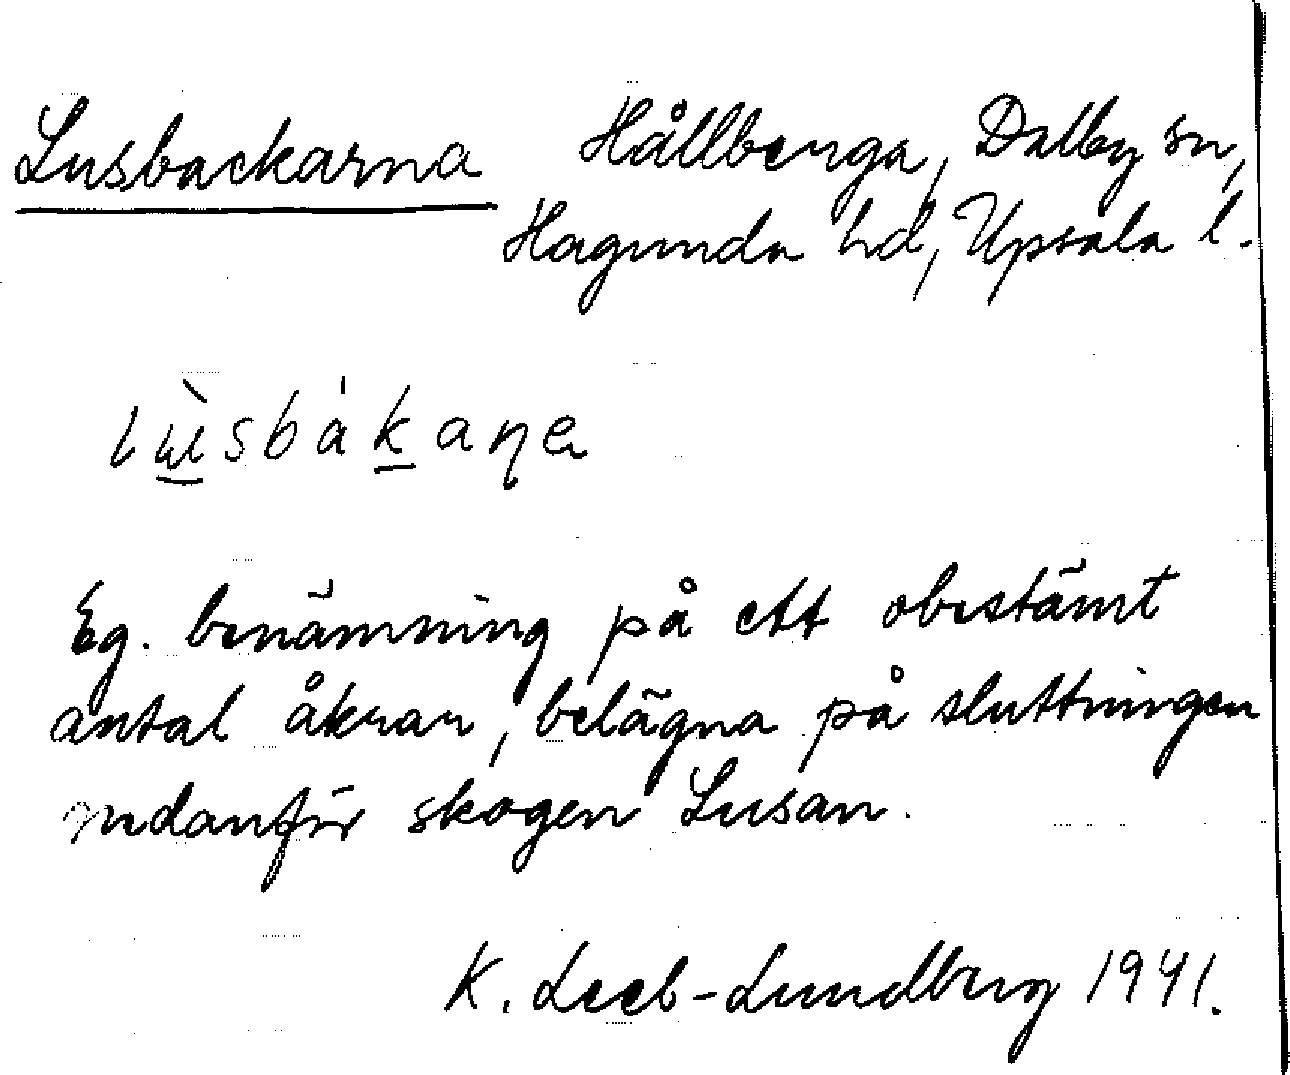 Lusbackarna Hållberga, Dalby sn,
Hagunda hd, Upsala l.
lɯ̀sbákaɳa
Eg. benämning på ett obestämt
antal åkrar, belägna på sluttningen
nedanför skogen Lusan.
K. Leeb-Lundberg 1941.